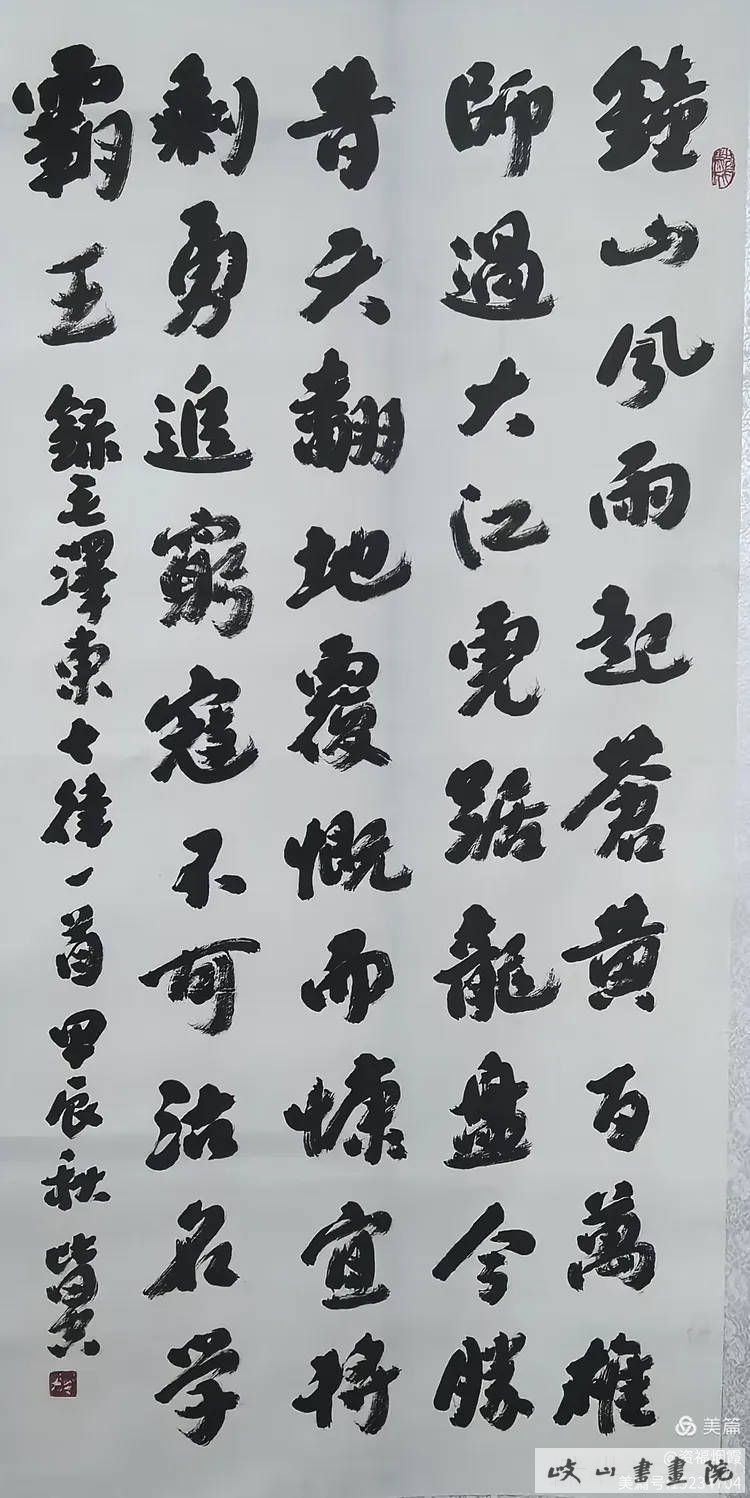 鐘山風雨起蒼黃百萬雄
師過大江虎踞龍盤今勝
昔天翻地覆慨而慷宜將
剩勇追窮寇不可沽名学
霸王
錄毛澤東七律一首甲辰秋
美篇
岐山書畫院